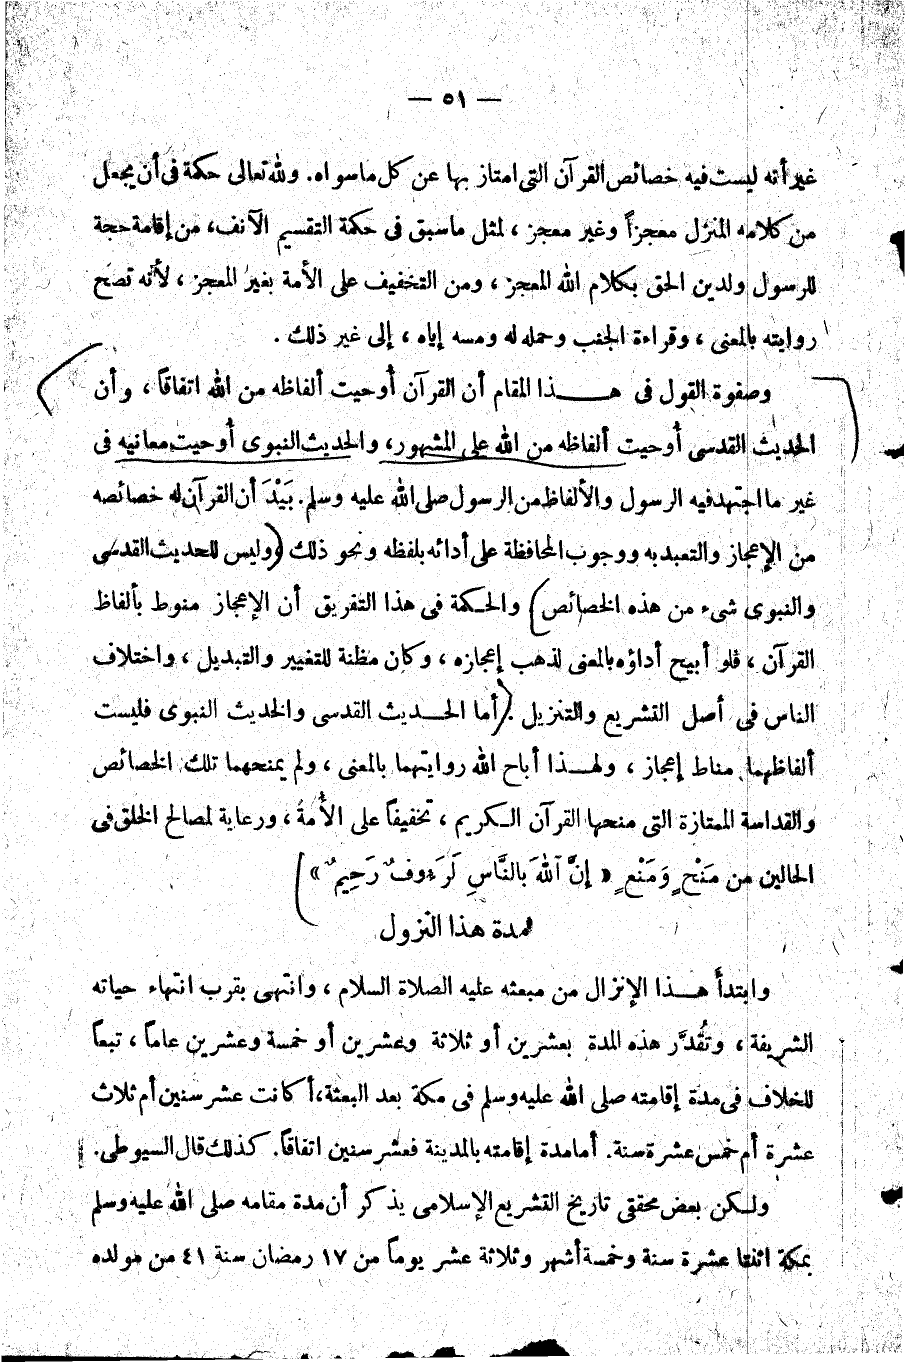 — ٥١ —
غير أنه ليست فيه خصائص القرآن التى امتاز بها عن كل ماسواه. ولله تعالى حكمة فى أن يجعل
من كلامه المنزل معجزاً وغير معجز ، لمثل ماسبق فى حكمة التقسيم الآنف، من إقامة حجة
للرسول ولدين الحق بكلام الله المعجز ، ومن التخفيف على الأمة بغير المعجز ، لأنه تصح
روايته بالمعنى ، وقراءة الجنب وحمله له ومسه إياه ، إلى غير ذلك .
وصفوة القول فى هـــذا المقام أن القرآن أُوحيت ألفاظه من الله اتفاقاً ، وأن
الحديث القدسى أُوحيت ألفاظه من الله على المشهور، والحديث النبوى أُوحيت معانيه فى
غير ما اجتهد فيه الرسول والألفاظ من الرسول صلى الله عليه وسلم. بَيْدَ أن القرآن له خصائصه
من الإعجاز والتعبد به ووجوب المحافظة على أدائه بلفظه ونحو ذلك ، وليس للحديث القدسى
والنبوى شىء من هذه الخصائص . والحكمة فى هذا التفريق أن الإعجاز منوط بألفاظ
القرآن ، فلو أبيح أداؤه بالمعنى لذهب إعجازه ، وكان مظنة للتغيير والتبديل ، واختلاف
الناس فى أصل التشريع والتنزيل . أما الحـــديث القدسى والحديث النبوى فليست
ألفاظهما مناط إعجاز ، ولهـــذا أباح الله روايتهما بالمعنى ، ولم يمنحهما تلك الخصائص
والقداسة الممتازة التى منحها القرآن الـكريم ، تخفيفاً على الأُمة ، ورعاية لمصالح الخلق فى
الحالين من مَنْحٍ وَمَنْعٍ « إنَّ ٱللهَ بالنَّاسِ لَرَءوفٌ رَحِيمٌ »
مدة هذا النزول
وابتدأ هـــذا الإنزال من مبعثه عليه الصلاة السلام ، وانتهى بقرب انتهاء حياته
الشريفة ، وتُقدَّر هذه المدة بعشرين أو ثلاثة وعشرين أو خمسة وعشرين عاماً ، تبعاً
للخلاف فى مدة إقامته صلى الله عليه وسلم فى مكة بعد البعثة، أكانت عشر سنين أم ثلاث
عشرة أم خمس عشرة سنة. أما مدة إقامته بالمدينة فعشر سنين اتفاقاً. كذلك قال السيوطى.
ولـكن بعض محققى تاريخ التشريع الإسلامى يذكر أن مدة مقامه صلى الله عليه وسلم
بمكة اثنتا عشرة سنة وخمسة أشهر وثلاثة عشر يوماً من ١٧ رمضان سنة ٤١ من مولده